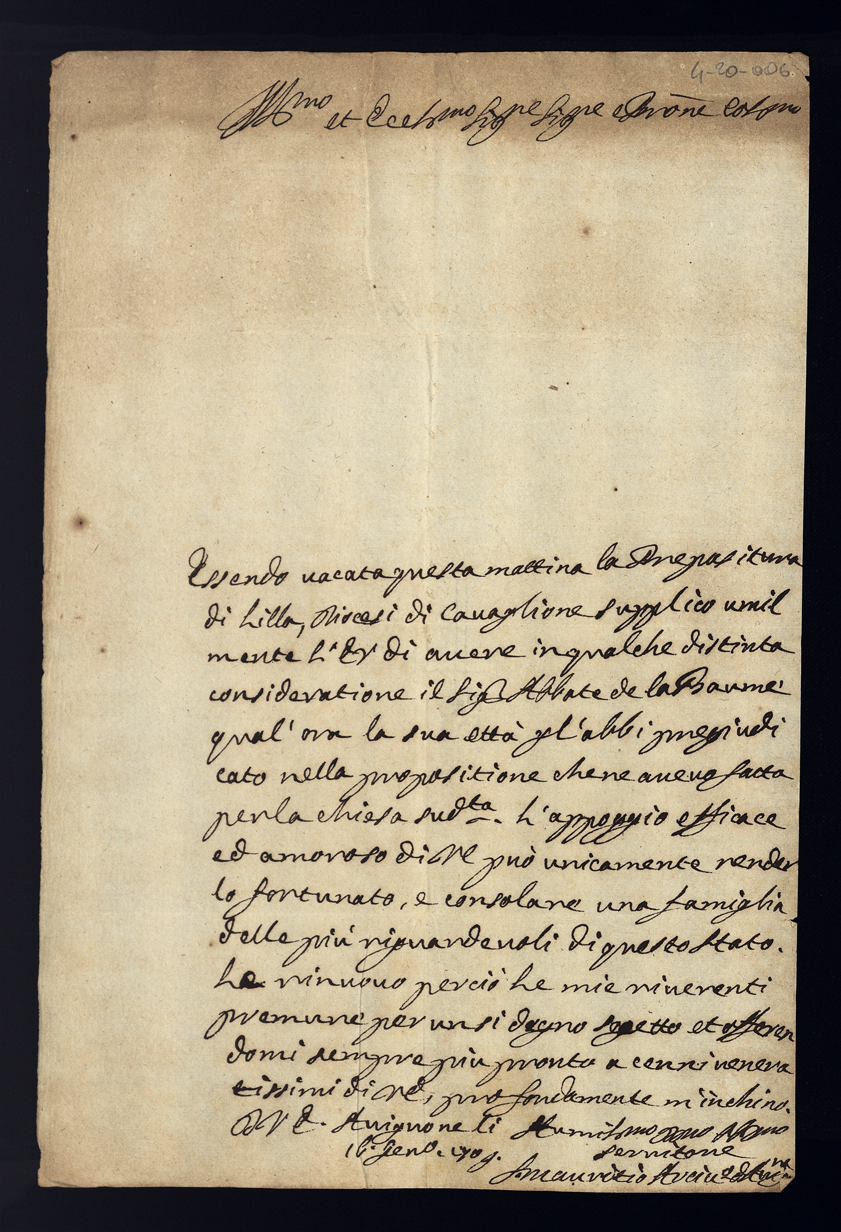 4-20-006
Illmo et Eccelmo Sigre Sigre e Prōne Colmo
Essendo vacata questa mattina la Prepositura
di Lilla, Diocesi di Cavaglione supplico umil
mente L' E V di avere in qualche distinta
consideratione il Sigr Abbate de la Baume
qual' ora la sua età gl' abbi pregiudi
cato nella propositione che ne aveva fatta
per la chiesa sudta. L' appoggio efficace
ed amoroso di VE può unicamente render
lo fortunato, e consolare una famiglia
delle più riguardevoli di questo stato.
Le rinuovo perciò le mie riverenti
premure per un sì degno sogetto et offeren
domi sempre più pronto a cenni venera
tissimi di VE, profondamente m'inchino.
D V E. Avignone li Humilmo Dmo Obbmo
16. Genro. 1709. servitore
S. Mauritio Arciv